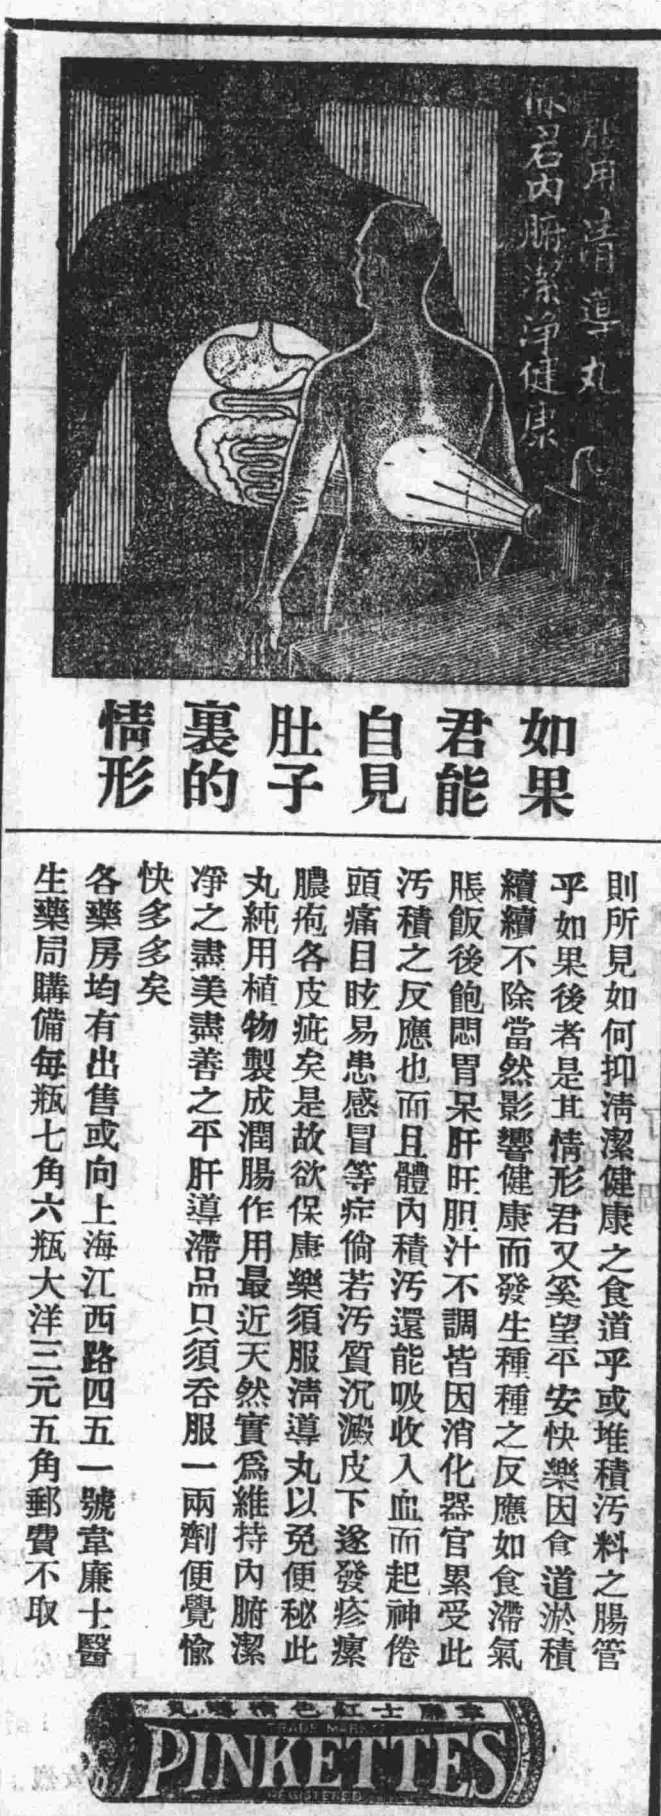 服用清導丸
保君內腑潔淨健康
如果
君能
自見
肚子
裏的
情形
則所見如何抑淸潔健康之食道乎或堆積汚料之腸管
乎如果後者是其情形君又奚望平安快樂因食道淤積
續續不除當然影響健康而發生種種之反應如食滯氣
脹飯後飽悶胃呆肝旺胆汁不調皆因消化器官累受此
汚積之反應也而且體內積汚還能吸收入血而起神倦
頭痛目眩易患感冒等症倘若汚質沉澱皮下遂發疹瘰
膿疱各皮疵矣是故欲保康樂須服淸導丸以免便秘此
丸純用植物製成潤腸作用最近天然實爲維持內腑潔
淨之盡美盡善之平肝導滯品只須呑服一兩劑便覺愉
快多多矣
各藥房均有出售或向上海江西路四五一號韋廉士醫
生藥局購備每瓶七角六瓶大洋三元五角郵費不取
韋廉士紅色清導丸
TRADE MARK
PINKETTES
REGISTERED